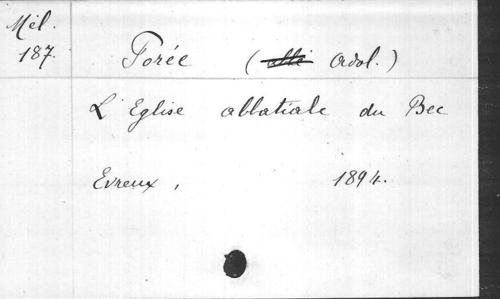 Mél.
187.
Forée (abbé Adol.)
L'Eglise abbatiale du Bec
Evreux, 1894.